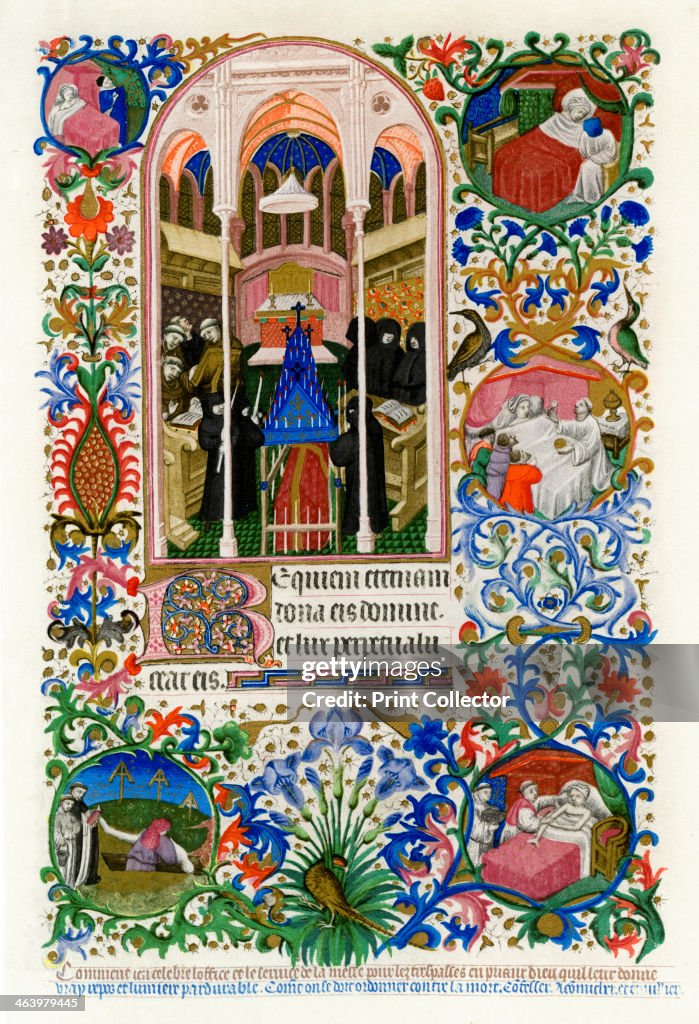 REquiem eternam
dona eis domine.
et lux perpetua lu
ceat eis.
gettyimages
Credit: Print Collector
Comment celebre loffice et le service de la messe pour lez trespasses en priant dieu quil leur donne
vray repos et lumiere pardurable. on se doit ordonner contre la mort.
463979445